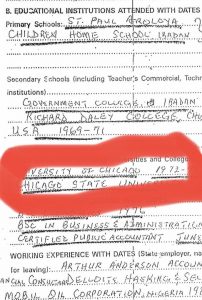 8. EDUCATIONAL INSTITUTIONS ATTENDED WITH DATES
Primary Schools: ST. PAUL AROLOYA
CHILDREN HOME SCHOOL IBADAN
Secondary Schools (including Teacher's Commercial, Techn
institutions)
GOVERNMENT COLLEGE, IBADAN
RICHARD DALEY COLLEGE, CH
U.S.A 1969-71
ities and Colleg
VERSITY OF CHICAGO 1972-
HICAGO STATE UNI
BSC IN BUSINESS & ADMINISTRATIO
CERTIFIED PUBLIC ACCOUNTANT
WORKING EXPERIENCE WITH DATES (State employer, na
for leaving): ARTHUR ANDERSON ACCOUN
ANCIAL CONSULTANTS DELLOITE HASKING & SEL
MOBIL OIL CORPORATION, NIGERIA